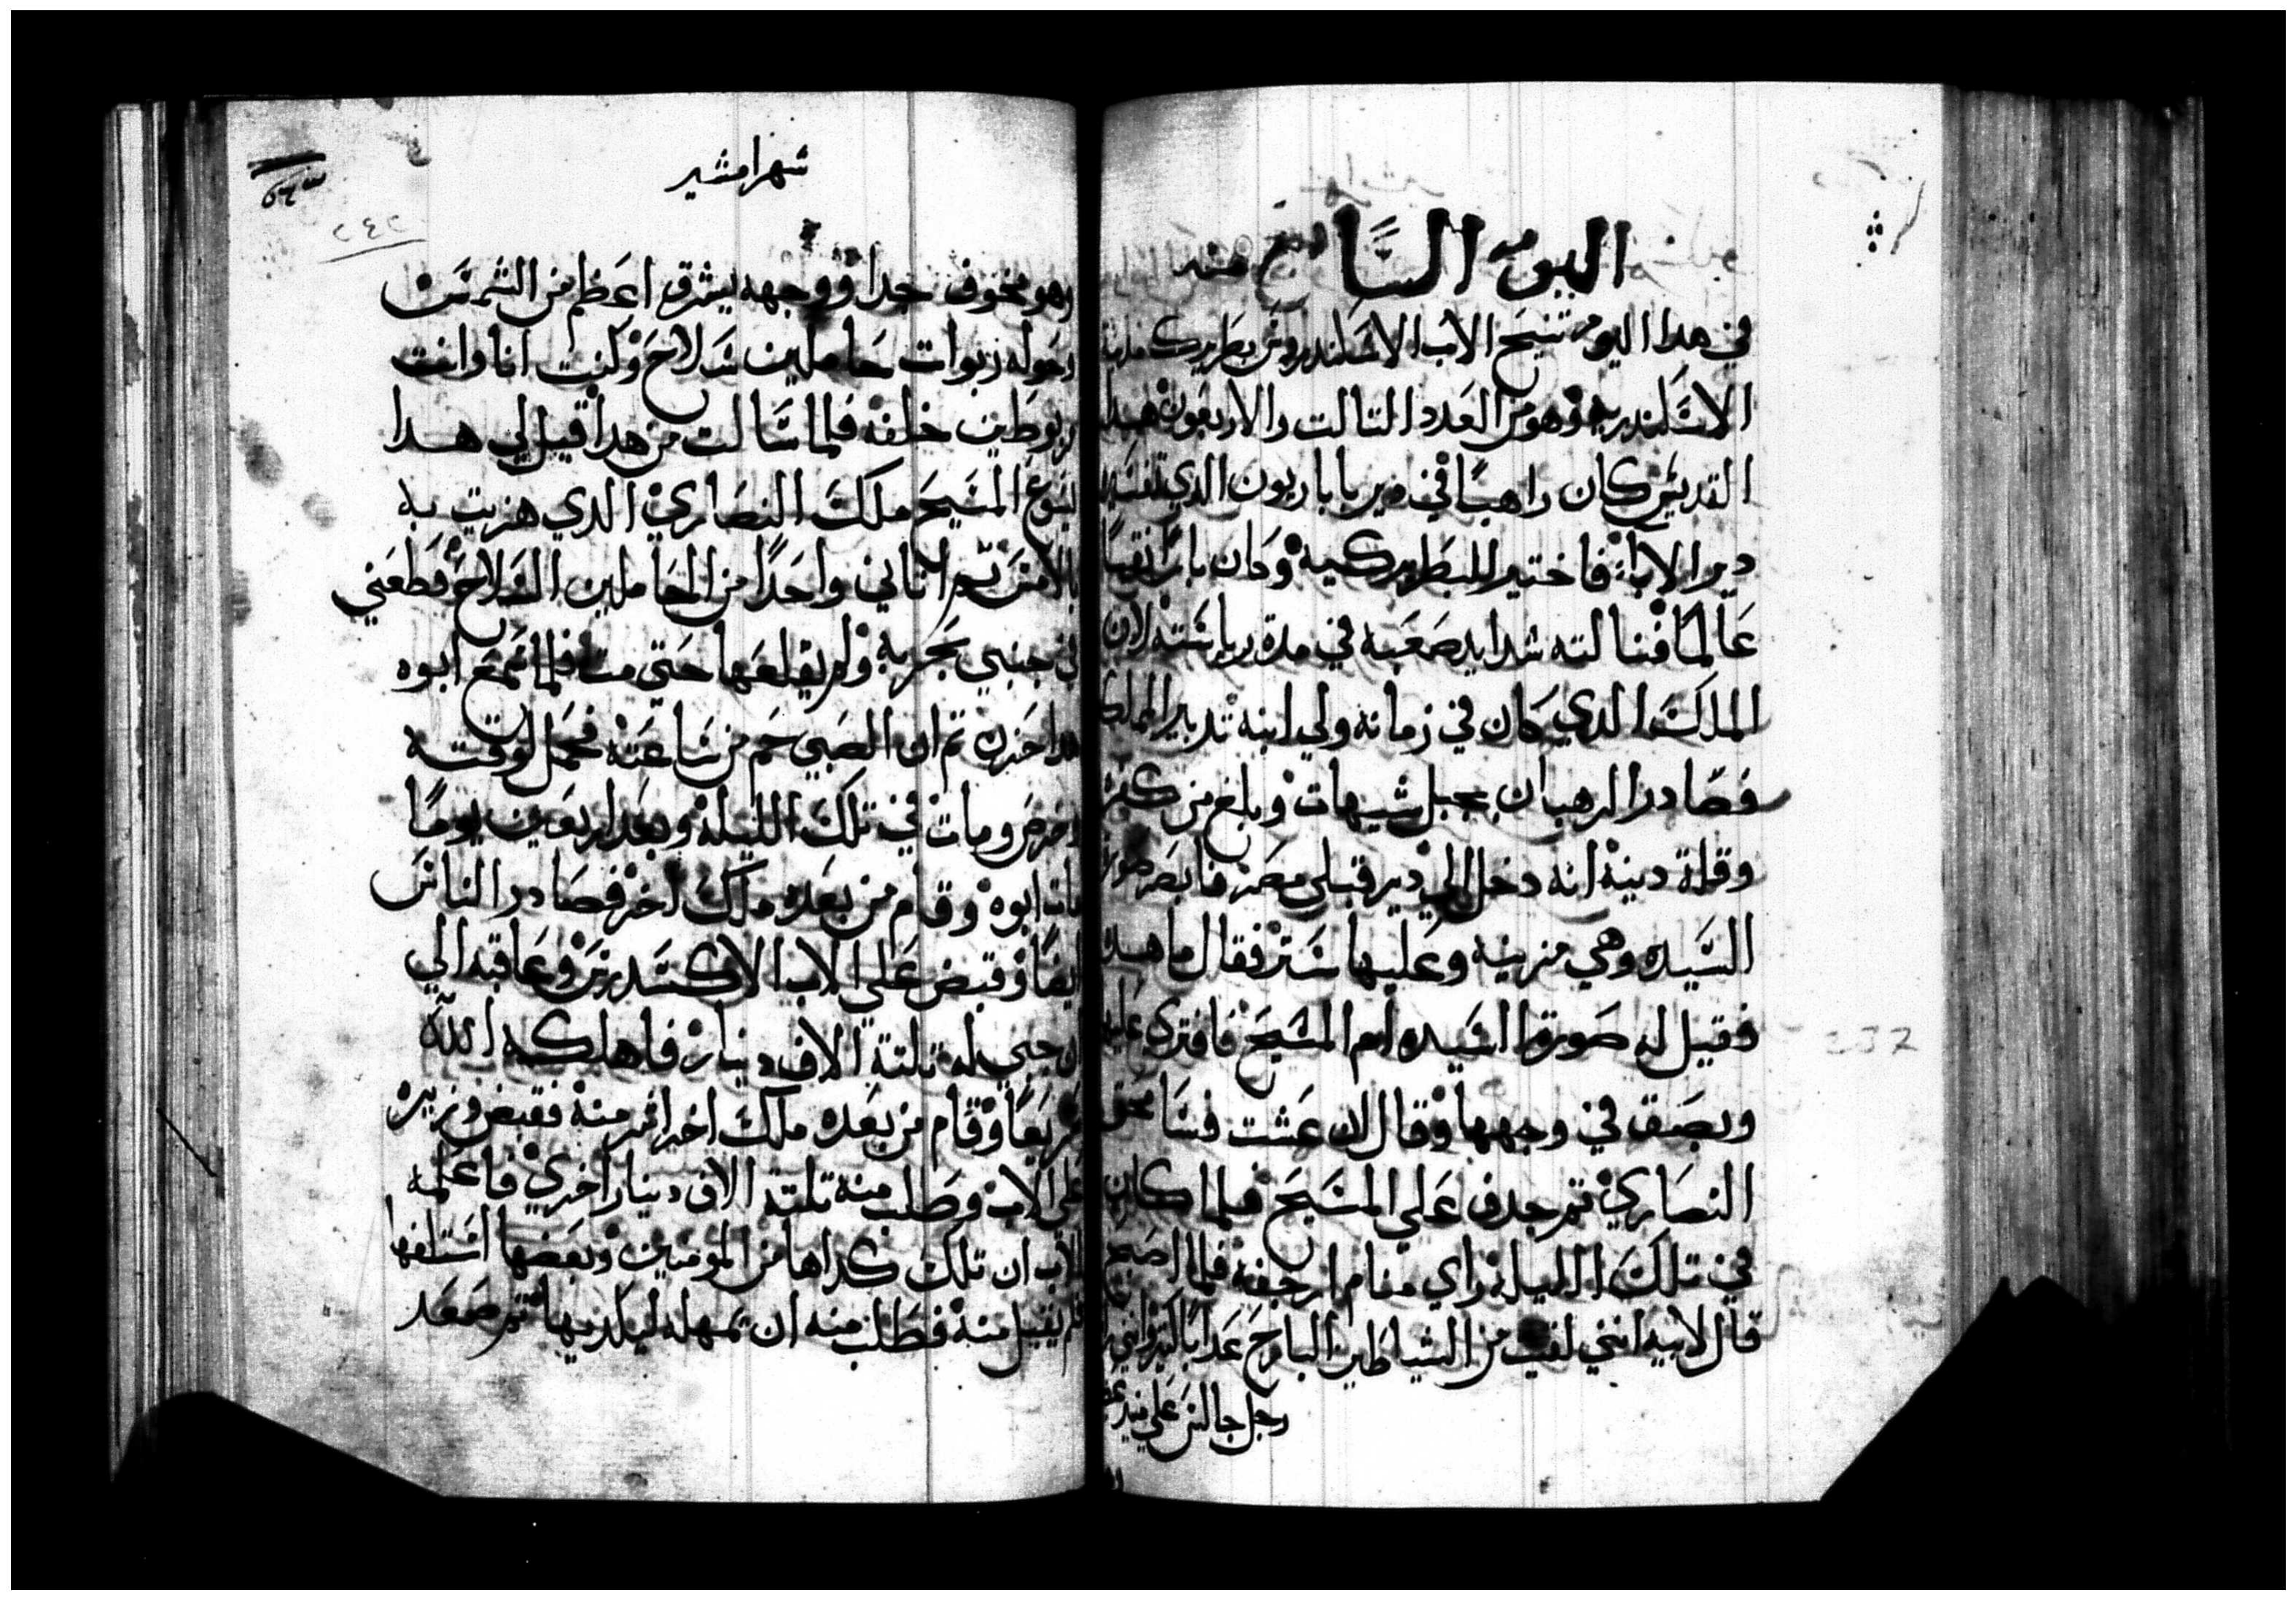 اليوم السابع منه
في هدا اليوم تنيح الاب الاسكندروس بطريرك مدينة
الاسكندريه وهو من العدد التالت والاربعون هدا
القديس كان راهبًا في دير باباريون الدي تفسيره
دير الابا فاختير للبطريركيه وكان بارا تقيًا
عالمًا فنالته شدايد صعبه في مدة رياسته لان
الملك الدي كان في زمانه ولي ابنه تدبير المملكه
فصادر الرهبان بجبل شيهات وبلغ من كفره
وقلة دينه انه دخل الي دير قبلي مصر فابصر صورة
السيده وهي مزينه وعليها ستر فقال ما هده
فقيل له صورة السيده ام المسيح فافتري عليها
وبصق في وجهها وقال ان عشت فسامحق
النصاري تم جدف علي المسيح فلما كان
في تلك الليله راي منام ارجفه فلما اصبح
قال لابيه انني لقيت من الشياطين البارح عدابًا لاني رايت
رجل جالس علي منبر
٢٣٧
شهر امشير
٢٤٢
وهو مخوف جدا ووجهه يشرق اعظم من الشمس
وحوله ربوات حاملين سلاح وكنت انا وانت
مربوطين خلفه فلما سالت من هدا قيل لي هدا
يسوع المسيح ملك النصاري الدي هزيت به
بالامس تم اتاني واحدًا من الحاملين السلاح فطعني
في جنبي بحربه ولم يقلعها حتي مت فلما سمع ابوه
هدا حزن تم ان الصبي حم من ساعته فحمل لوقته
وخرس ومات في تلك الليله وبعد اربعين يومًا
مات ابوه وقام من بعده ملك اخر فصادر الناس
ايضًا وقبض علي الاب الاكسندروس وعاقبه الي
ان جبي له تلتة الاف دينار فاهلكه الله
سريعًا وقام من بعده ملك اخر اشر منه فقبض وزيره
علي الاب وطلب منه تلتة الاف دينار اخري فاعلمه
الاب ان تلك كداها من المومنين وبعضها استلفها
فلم يقبل منه فطلب منه ان يمهله ليكديها تم صعد